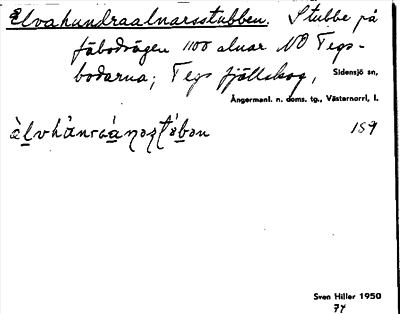 Elvahundraalnarsstubben. Stubbe på
fäbodvägen 1100 alnar NO Tegs-
bodarna; Tegs fjällskog, Sidensjö sn,
Ångermanl. n. doms. tg., Västernorrl. l.
159
Sven Hiller 1950
74